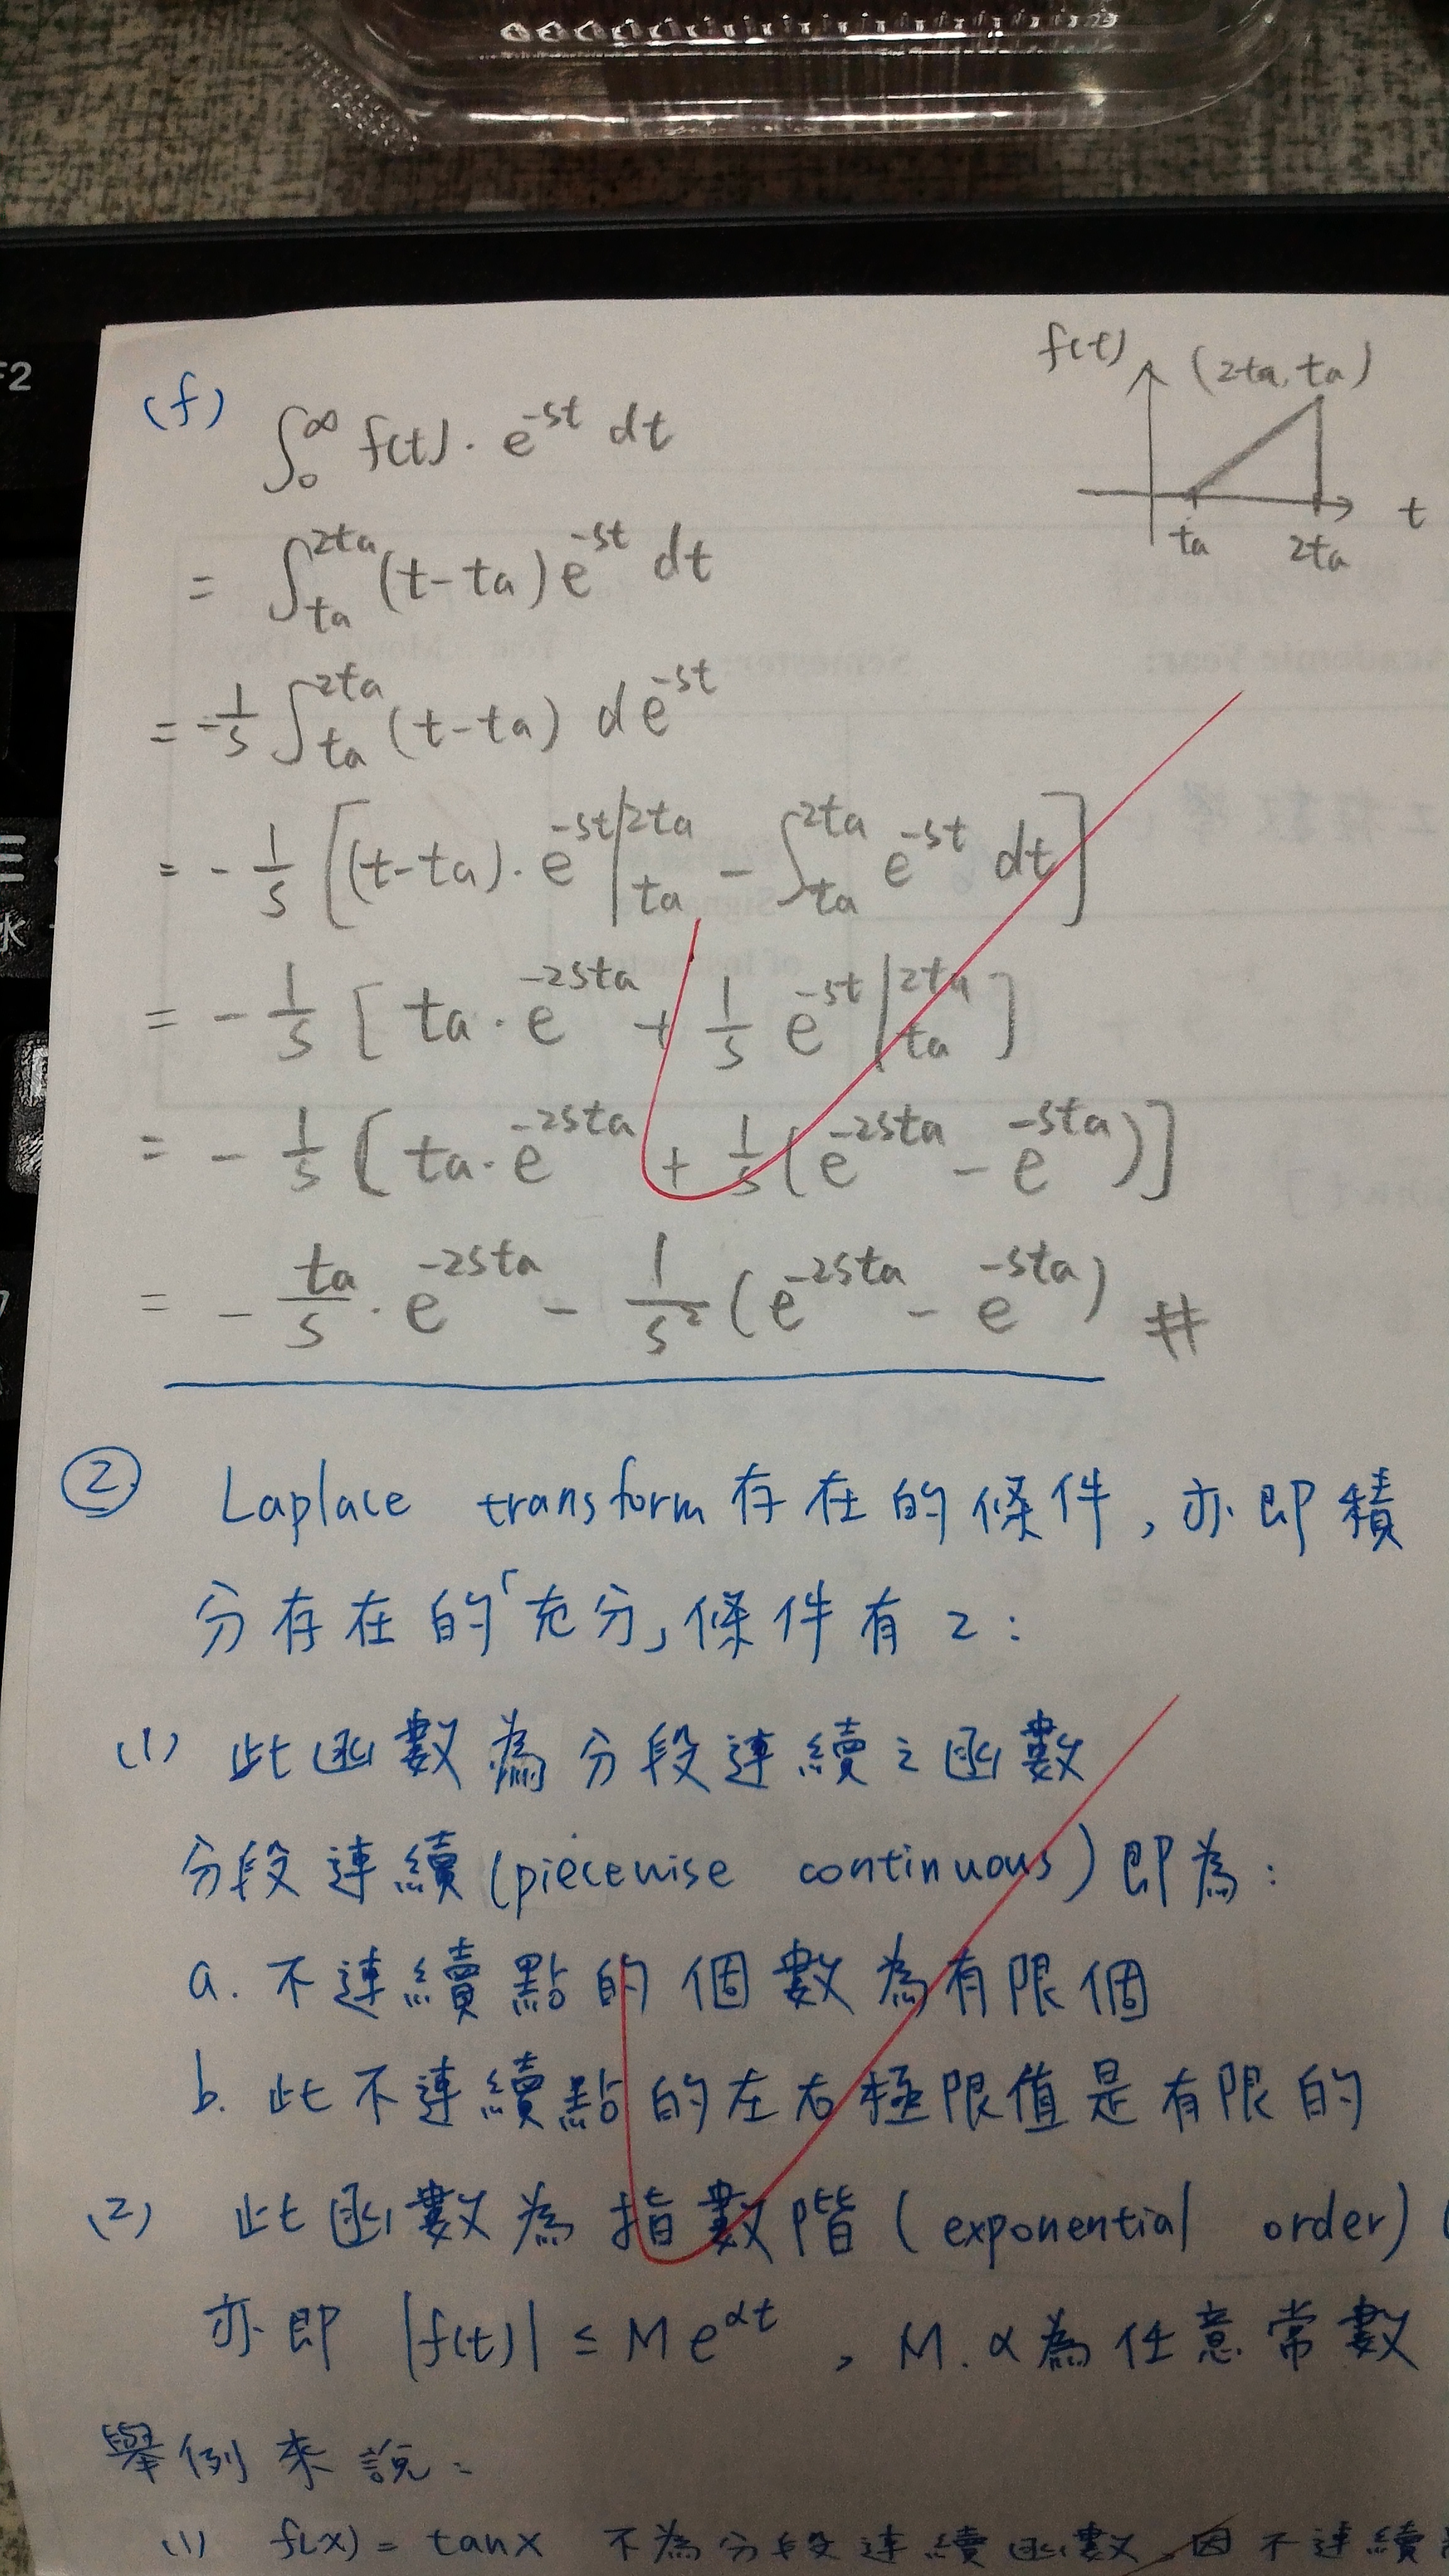 F2
(f)
f(t)
(2ta, ta)
∫₀^∞ f(t)·e^{-st} dt
t
ta 2ta
= ∫_{ta}^{2ta} (t-ta) e^{-st} dt
= -1/s ∫_{ta}^{2ta} (t-ta) de^{-st}
= -1/s [(t-ta)·e^{-st}|_{ta}^{2ta} - ∫_{ta}^{2ta} e^{-st} dt]
= -1/s [ta·e^{-2sta} + 1/s e^{-st}|_{ta}^{2ta}]
= -1/s [ta·e^{-2sta} + 1/s (e^{-2sta} - e^{-sta})]
= -ta/s · e^{-2sta} - 1/s² (e^{-2sta} - e^{-sta}) #
② Laplace transform 存在的條件,亦即積
分存在的「充分」條件有2:
(1) 此函數為分段連續之函數
分段連續(piecewise continuous)即為:
a. 不連續點的個數為有限個
b. 此不連續點的左右極限值是有限的
(2) 此函數為指數階(exponential order)(
亦即 |f(t)| ≤ Me^{αt}, M.α為任意常數
舉例來說:
(1) f(x) = tanx 不為分段連續函數,因不連續